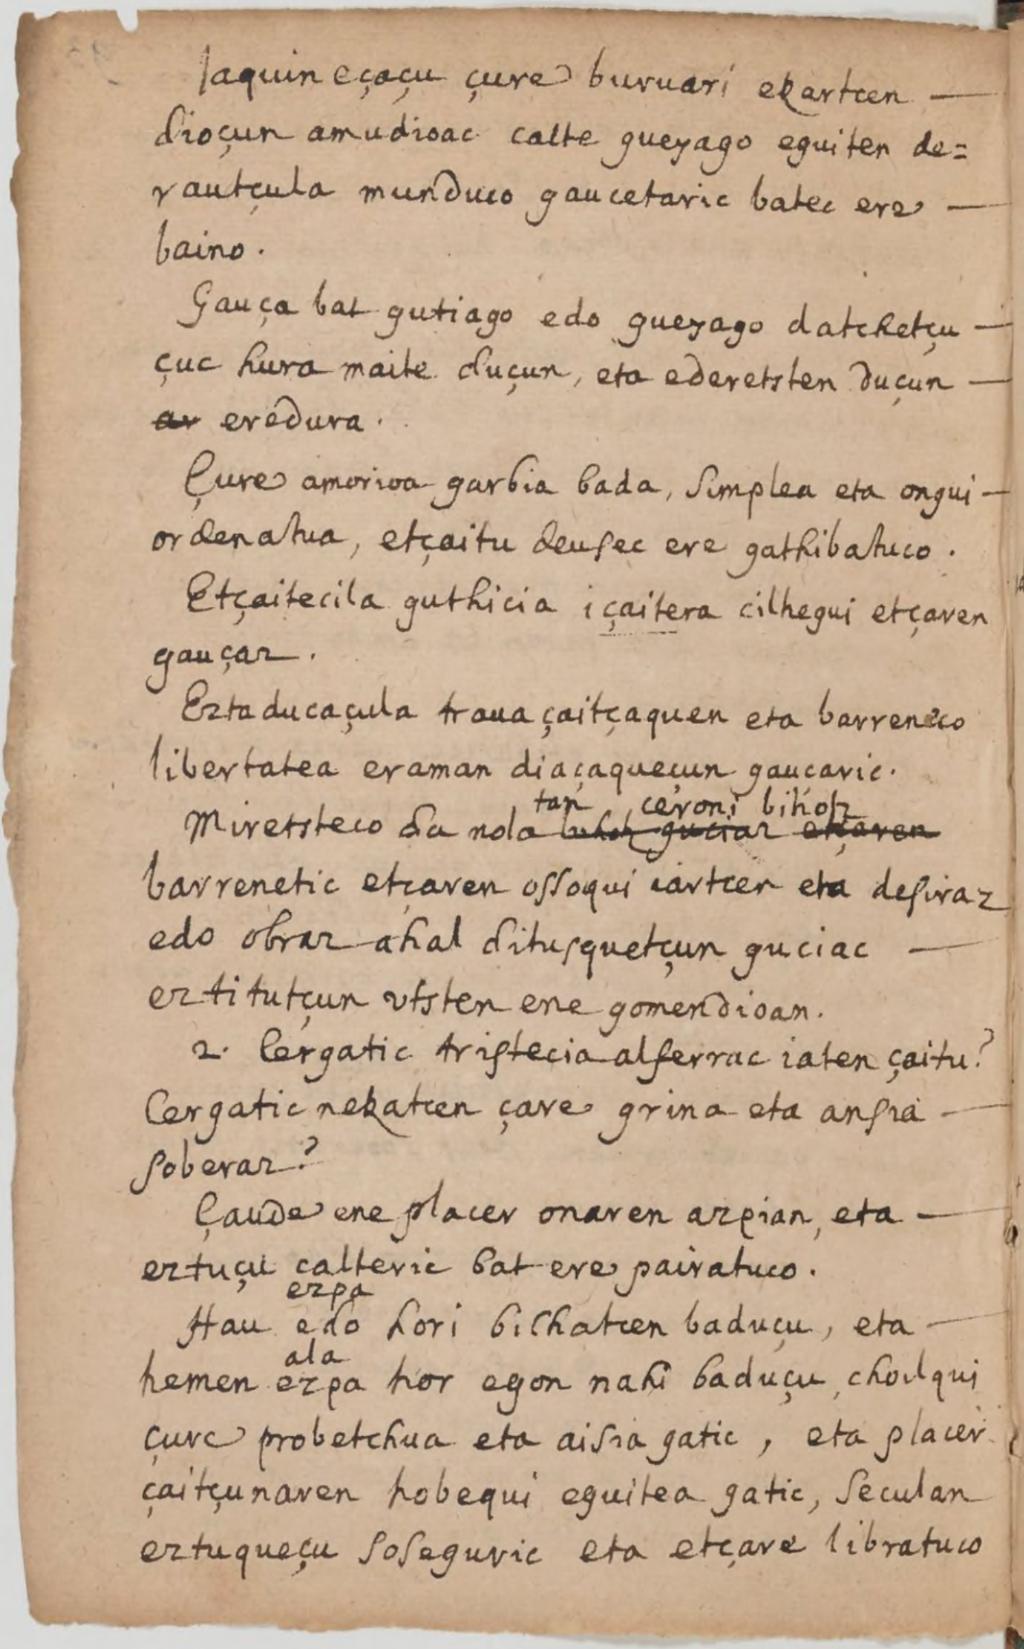 Iaquin eçaçu çure buruari ekartcen —
dioçun amudioac calte gueyago eguiten de=
rautçula munduco gaucetaric batec ere —
baino.
Gauça bat gutiago edo gueyago datchetçu —
çuc hura maite duçun, eta ederetsten duçun —
ar eredura.
Çure amorioa garbia bada, simplea eta ongui —
ordenatua, etçaitu deusec ere gathibatuco.
Etçaitecila guthicia içaitera cilhegui etçaren
gauçaz.
Eztaducaçula traua çaitçaquen eta barreneco
libertatea eraman diaçaqueçun gauçaric.
tan ceroni bihotz
Miretsteco da nola bihotz guciaz etçaren
barrenetic etçaren ossoqui iartcen eta desiraz
edo obraz ahal ditusquetçun guciac —
eztitutçun vtsten ene gomendioan.
2. Cergatic tristecia alferrac iaten çaitu?
Cergatic nekatcen çare grina eta ansia —
soberaz?
Çaude ene placer onaren azpian, eta —
eztuçu calteric bat ere pairatuco.
ezpa
Hau edo hori bilhatcen baduçu, eta —
ala
hemen ezpa hor egon nahi baduçu, choilqui
çure probetchua eta aisia gatic, eta placer
çaitçunaren hobequi eguitea gatic, seculan
eztuqueçu soseguric eta etçare libratuco